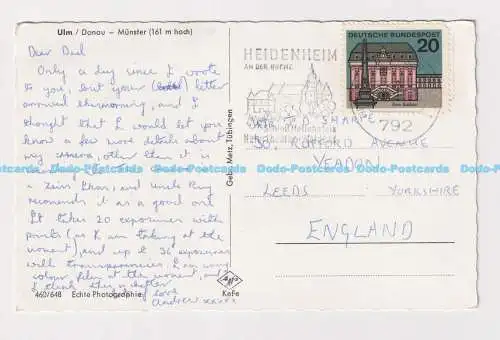 Ulm / Donau – Münster (161 m hoch)
Dear Dad
Only a day since I wrote
to you, but your letter
arrived this morning, and I
thought that I would let you
know a few more details about
my camera, other than it is
a Zeiss Ikon, and Uncle Ray
recommends it as a good one
It takes 20 exposures with
prints (as I am taking at the
moment), and up to 36 exposures
with transparencies. I am using
colour film at the moment, and
I think this is better
love
Andrew xxxx
460/648 Echte Photographie
Gebr. Metz, Tübingen
Agfa
KeFe
HEIDENHEIM
AN DER BRENZ
792
DEUTSCHE BUNDESPOST
20
Bonn Rathaus
MR. T.D. SHARPE
38, RUFFORD AVENUE
YEADON
LEEDS YORKSHIRE
ENGLAND
Dodo-Postcards Dodo-Postcards Dodo-Postcards Dodo-Postcards